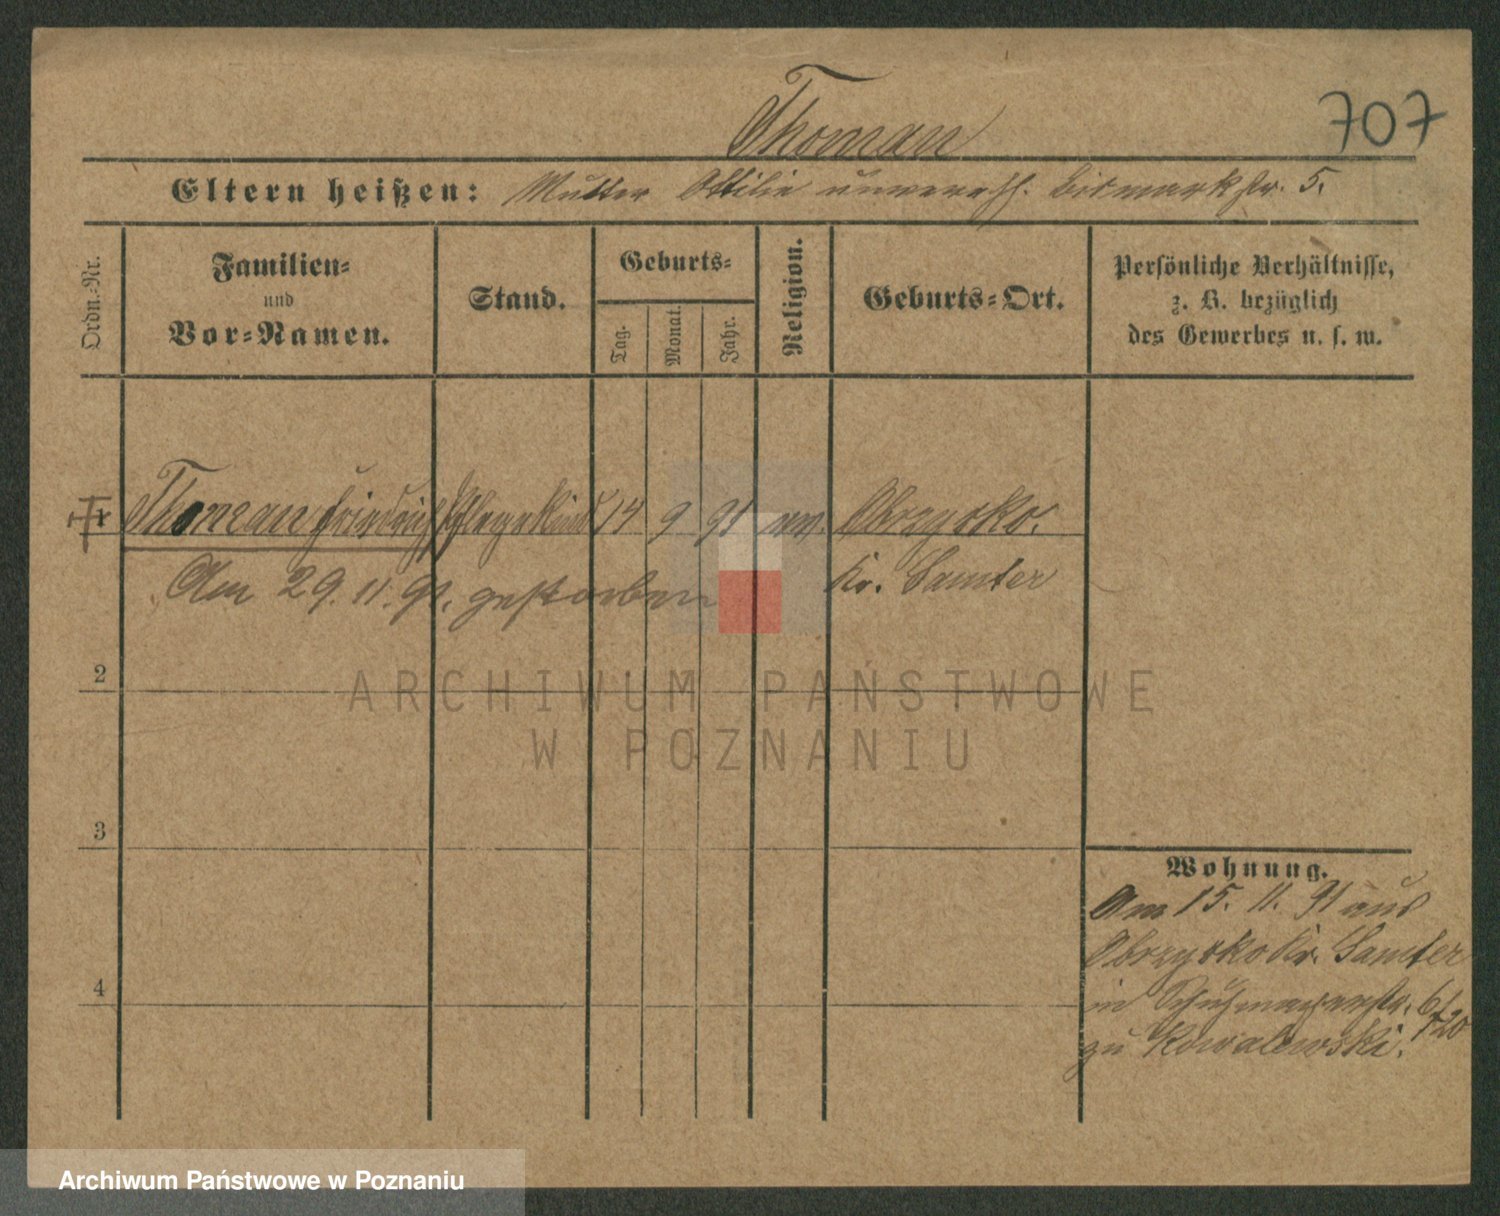 Thoman
707
Eltern heißen: Mutter Ottilie unvereh. Bismarkstr. 5.
Ordn.-Nr.
Familien-
und
Vor-Namen.
Stand.
Geburts-
Tag.
Monat.
Jahr.
Religion.
Geburts-Ort.
Persönliche Verhältnisse,
z. B. bezüglich
des Gewerbes u. s. w.
1 Thoman Friedrich Pflegekind 14 9 91 ev. Obrzycko.
Am 29. 11. 91. gestorben
Kr. Samter
2
ARCHIWUM PAŃSTWOWE
W POZNANIU
3
4
Wohnung.
Am 15. 11. 91 aus
Obrzycko Kr. Samter
in Schuhmacherstr. 6/
zu Kowalewski.
Archiwum Państwowe w Poznaniu